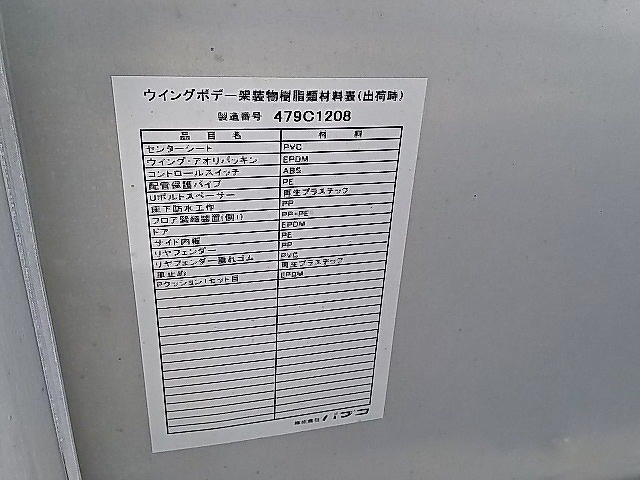 ウイングボデー架装物樹脂類材料表(出荷時)
製造番号 479C1208
品目名 材料
センターシート PVC
ウイング・アオリパッキン EPDM
コントロールスイッチ ABS
配管保護パイプ PE
Uボルトスペーサー 再生プラスチック
床下防水工作 PP
フロア緊締装置(側) PP・PE
ドア EPDM
サイド内櫃 PE
リヤフェンダー PP
リヤフェンダー垂れゴム PVC
車止め 再生プラスチック
Pクッション1セット目 EPDM
株式会社パブコ